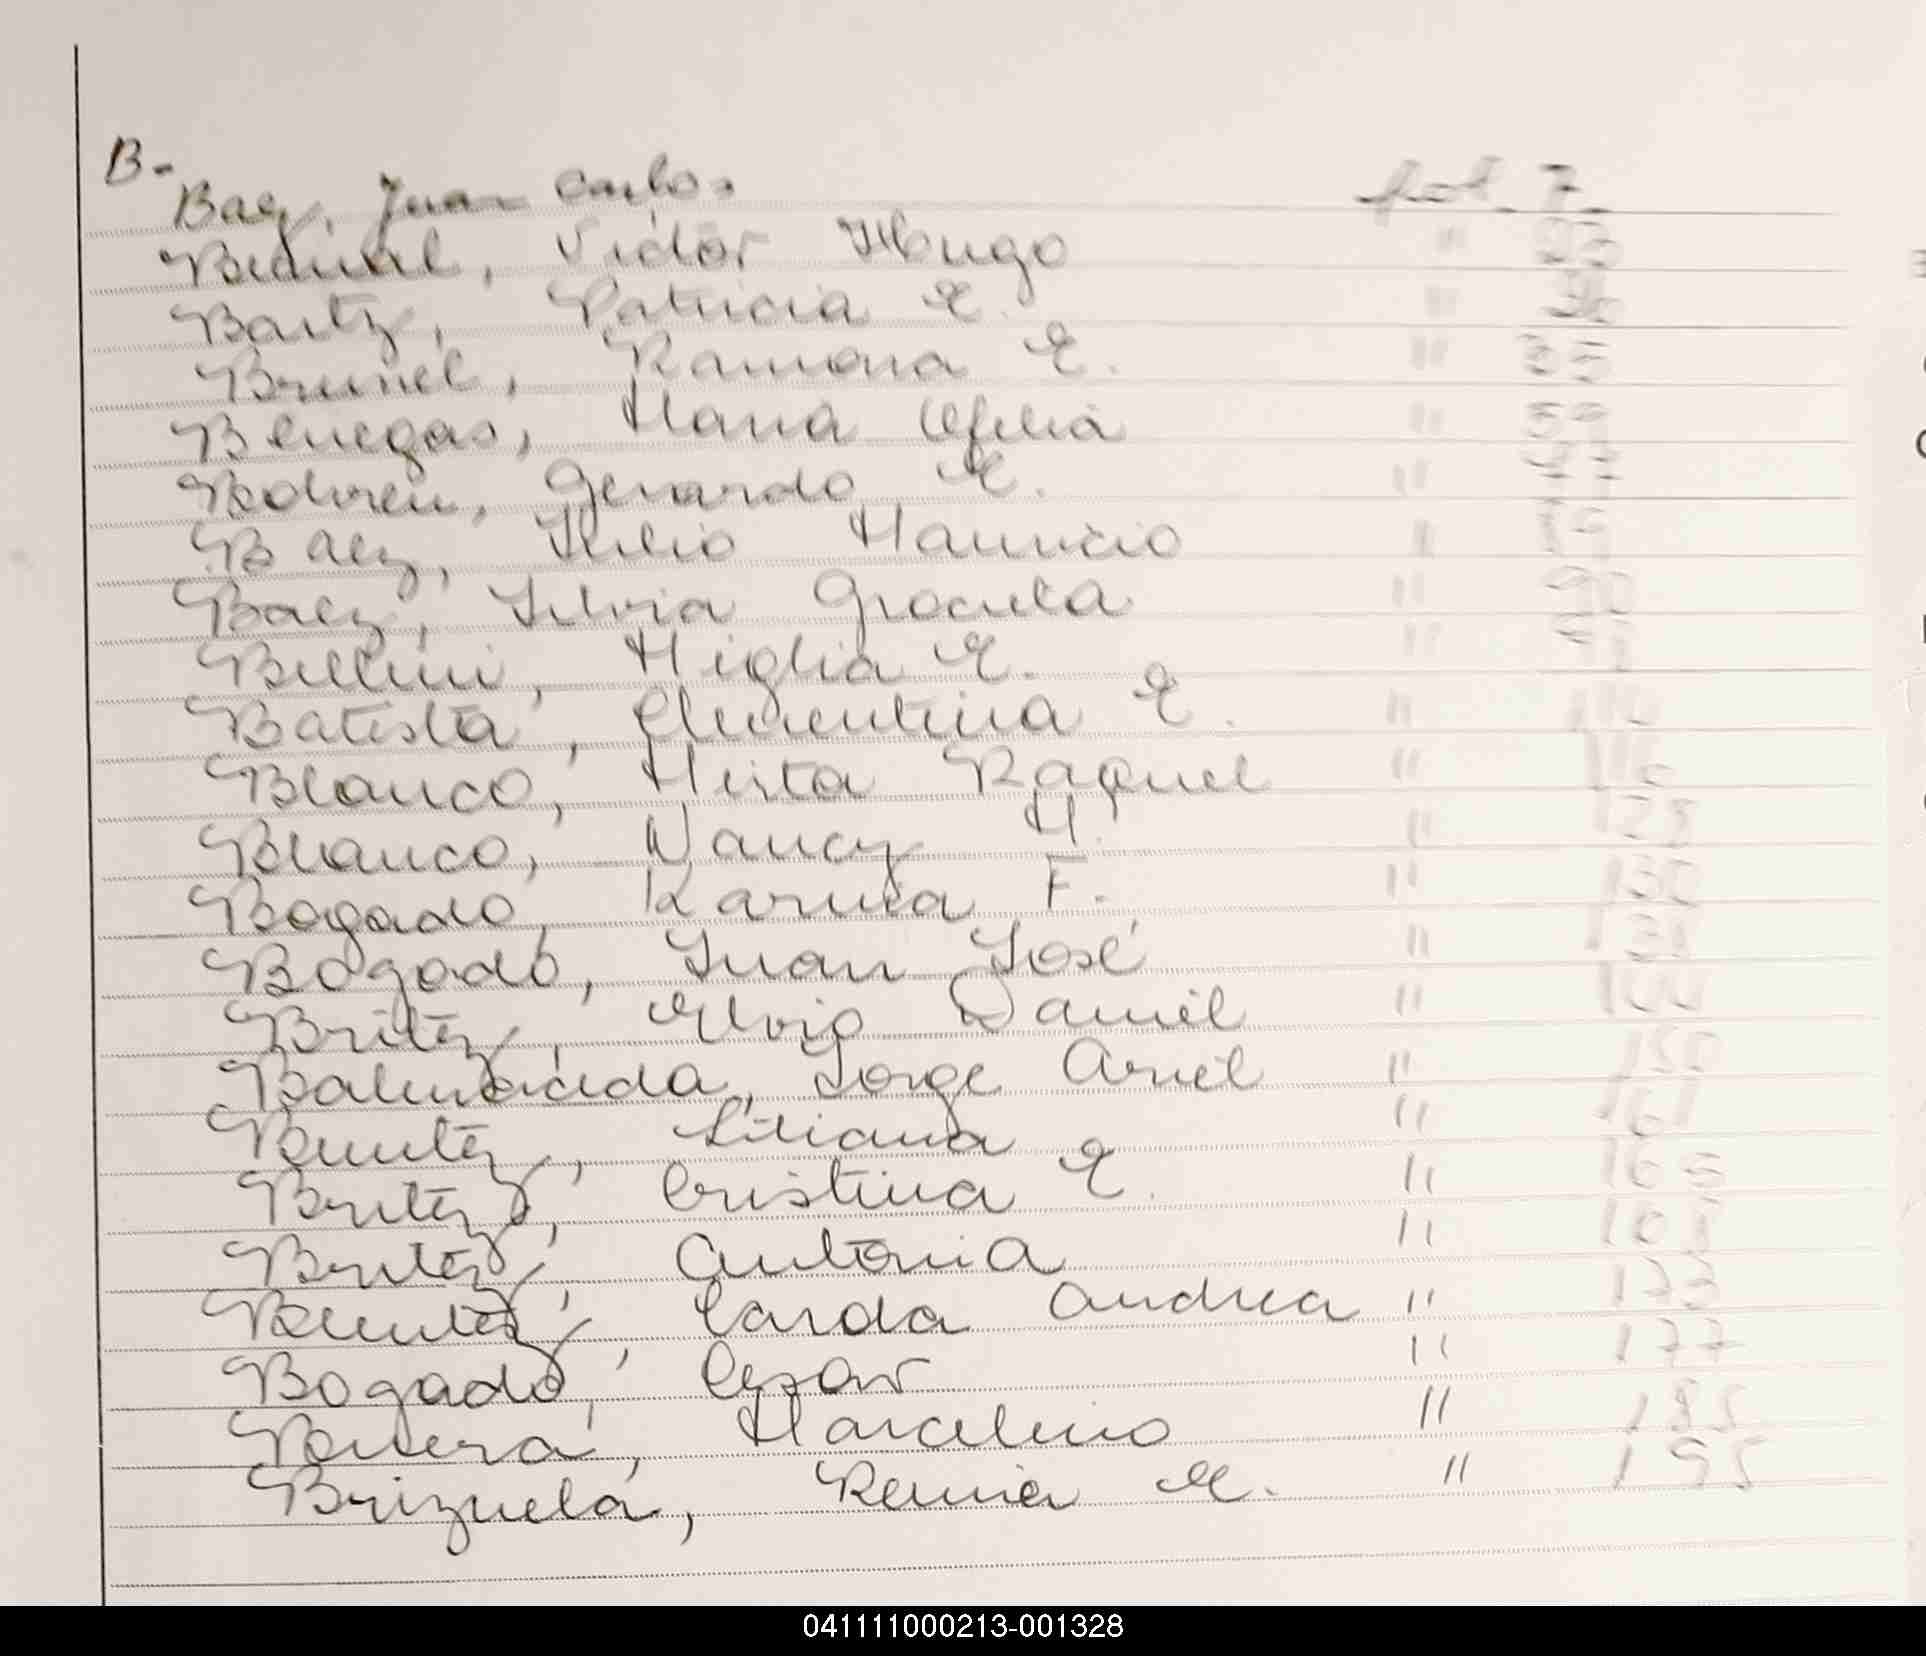 B-
Baez, Juan Carlos fol. 7
Víctor Hugo " 23
Baitz, Patricia E. "
Brunel, Ramona E. " 35
Benegas, María Ofelia " 39
Gerardo E. " 47
Baez, Julio Mauricio "
Baez, Silvia Graciela " 90
Bellini, Miglia E. "
Batista, Clementina E. "
Blanco, Mirta Raquel "
Blanco, Nancy M. " 128
Bogado, Karina F. " 130
Bogado, Juan José "
Britez, Elvio Daniel " 144
Balmaceda, Jorge Ariel " 150
Benitez, Liliana " 161
Britez, Cristina E. " 165
Britez, Antonia "
Benitez, Carola Andrea " 173
Bogado, Cesar " 177
Marcelino " 185
Brizuela, Remia E. " 195
041111000213-001328